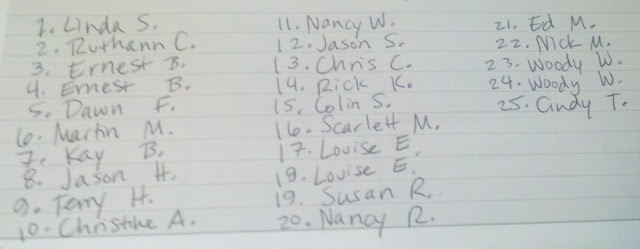 1. Linda S.
2. Ruthann C.
3. Ernest B.
4. Ernest B.
5. Dawn F.
6. Martin M.
7. Kay B.
8. Jason H.
9. Terry H.
10. Christine A.
11. Nancy W.
12. Jason S.
13. Chris C.
14. Rick K.
15. Colin S.
16. Scarlett M.
17. Louise E.
18. Louise E.
19. Susan R.
20. Nancy R.
21. Ed M.
22. Nick M.
23. Woody W.
24. Woody W.
25. Cindy T.